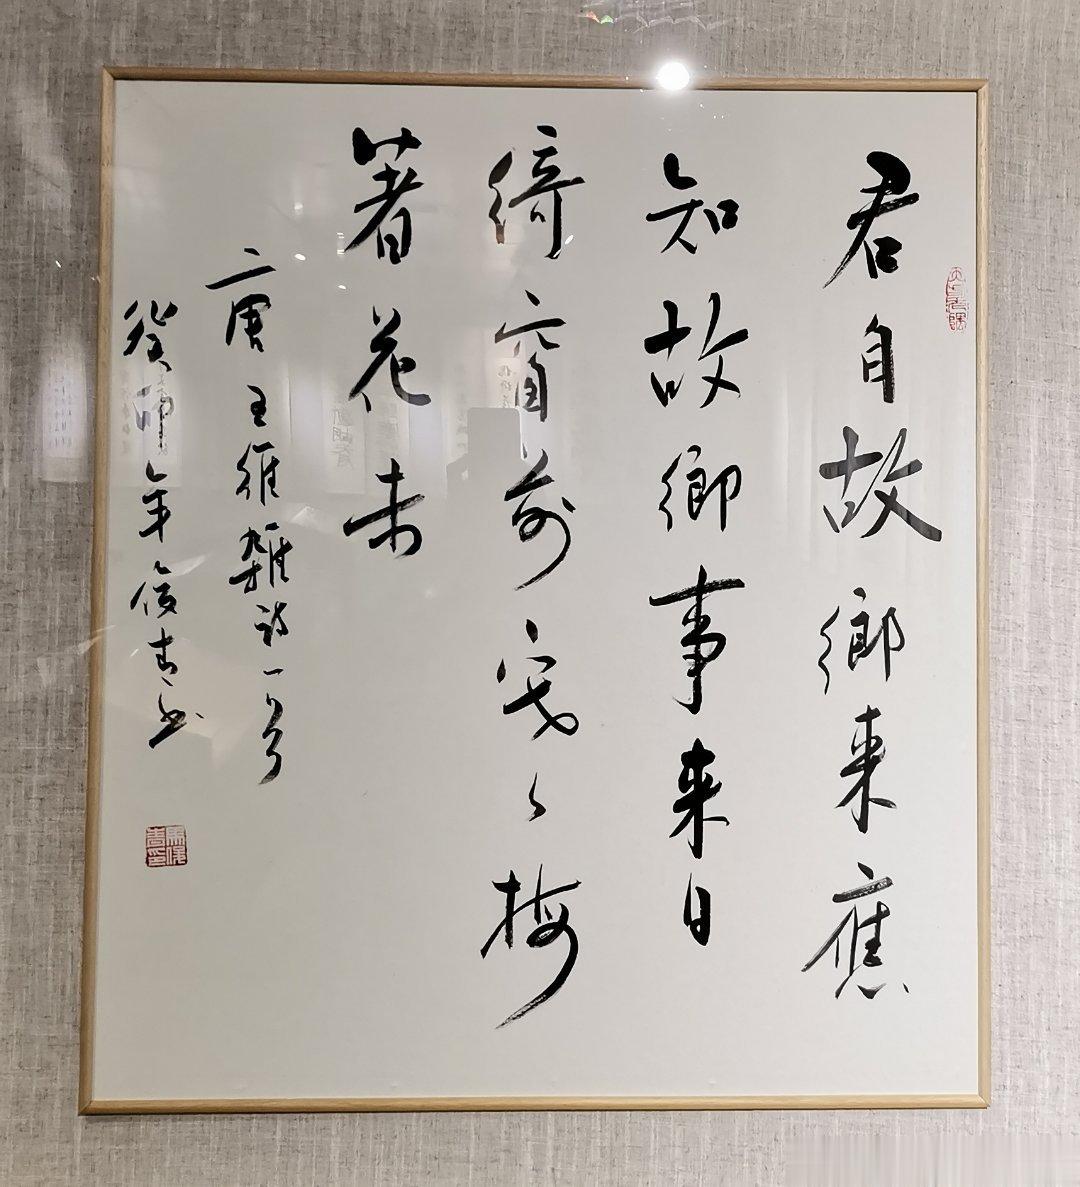 君自故鄉来應
知故鄉事来日
綺窗前寒梅
著花未
唐王維雜詩一首
癸卯年俊青书